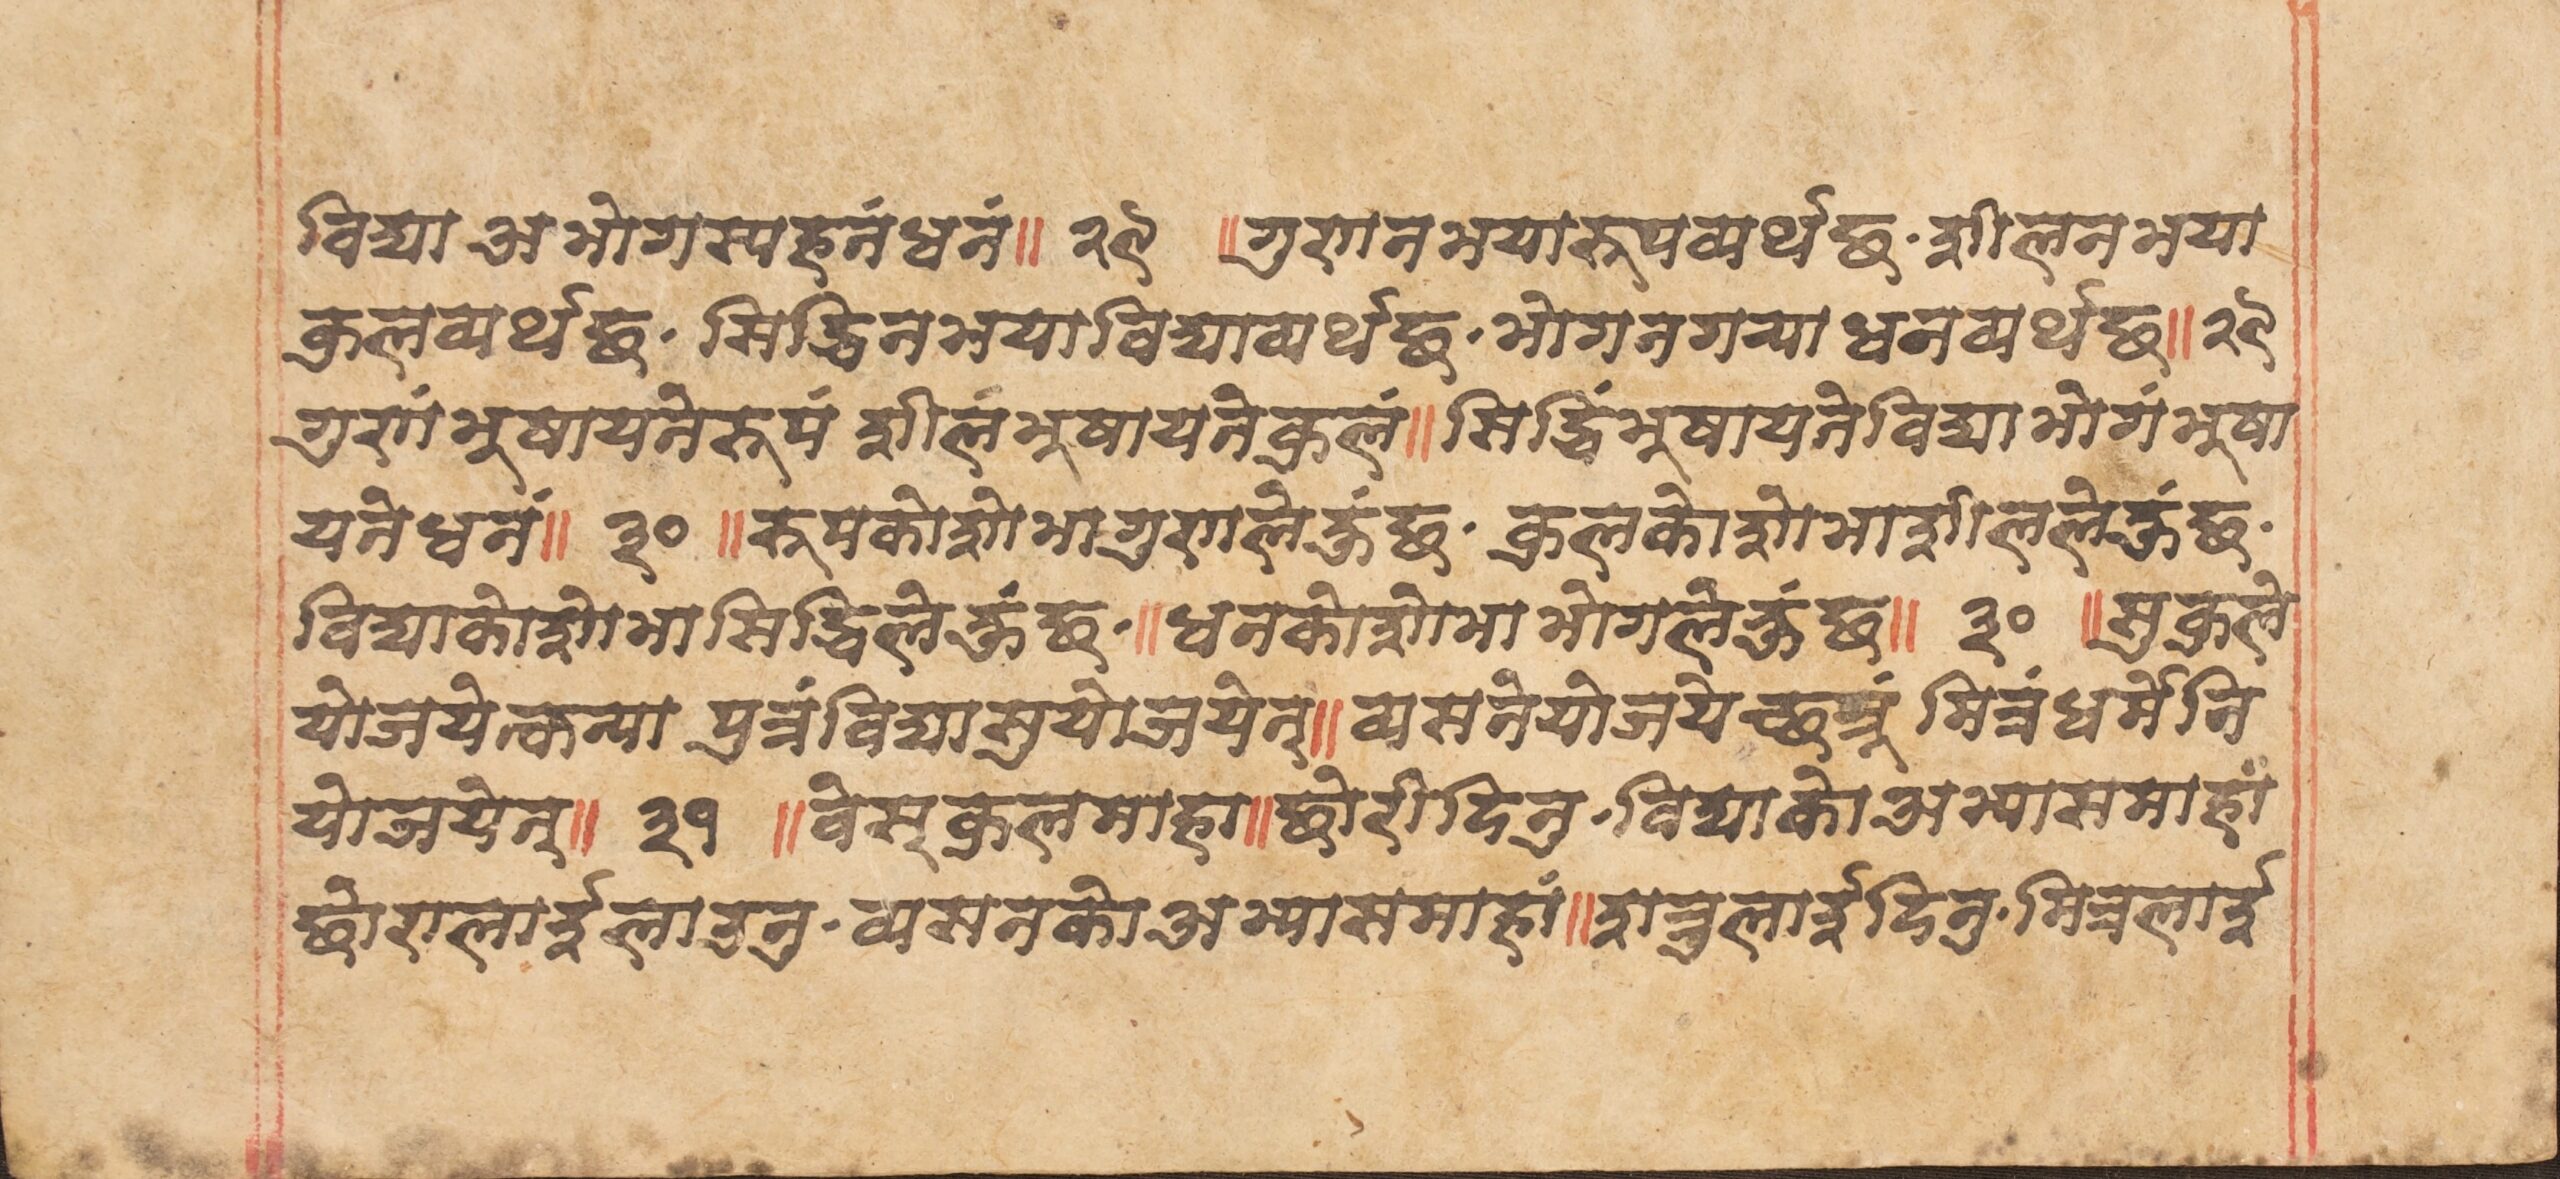 विद्या अभोगस्पहनंधनं॥ २९ ॥गुणनभयारूपव्यर्थछ· शीलनभया
कुलव्यर्थछ· सिद्धिनभयाविद्याव्यर्थछ· भोगनगन्याधनव्यर्थछ॥२९
गुणंभुषायनेरूपं शीलंभुषायनेकुलं॥सिद्धिंभुषायनेविद्याभोगंभुषा
यनेधनं॥ ३० ॥रूपकोशोभागुणलेर्क्तंछ· कुलकोशोभाशीललेर्क्तंछ·
विद्याकोशोभासिद्धिलेर्क्तंछ·॥धनकोशोभाभोगलेर्क्तंछ॥ ३० ॥सुकुले
योजयेत्कन्या पुत्रंविद्यासुयोजयेत्॥व्यसनेयोजयेच्छत्रुं मित्रंधर्मेनि
योजयेत्॥ ३१ ॥वेस्कुलमाहा॥छोरीदिनु·विद्याकोअभ्यासमाहां
छोरालाईलाउनु·व्यसनकोअभ्यासमाहां॥शत्रुलाईदिनु·मित्रलाई